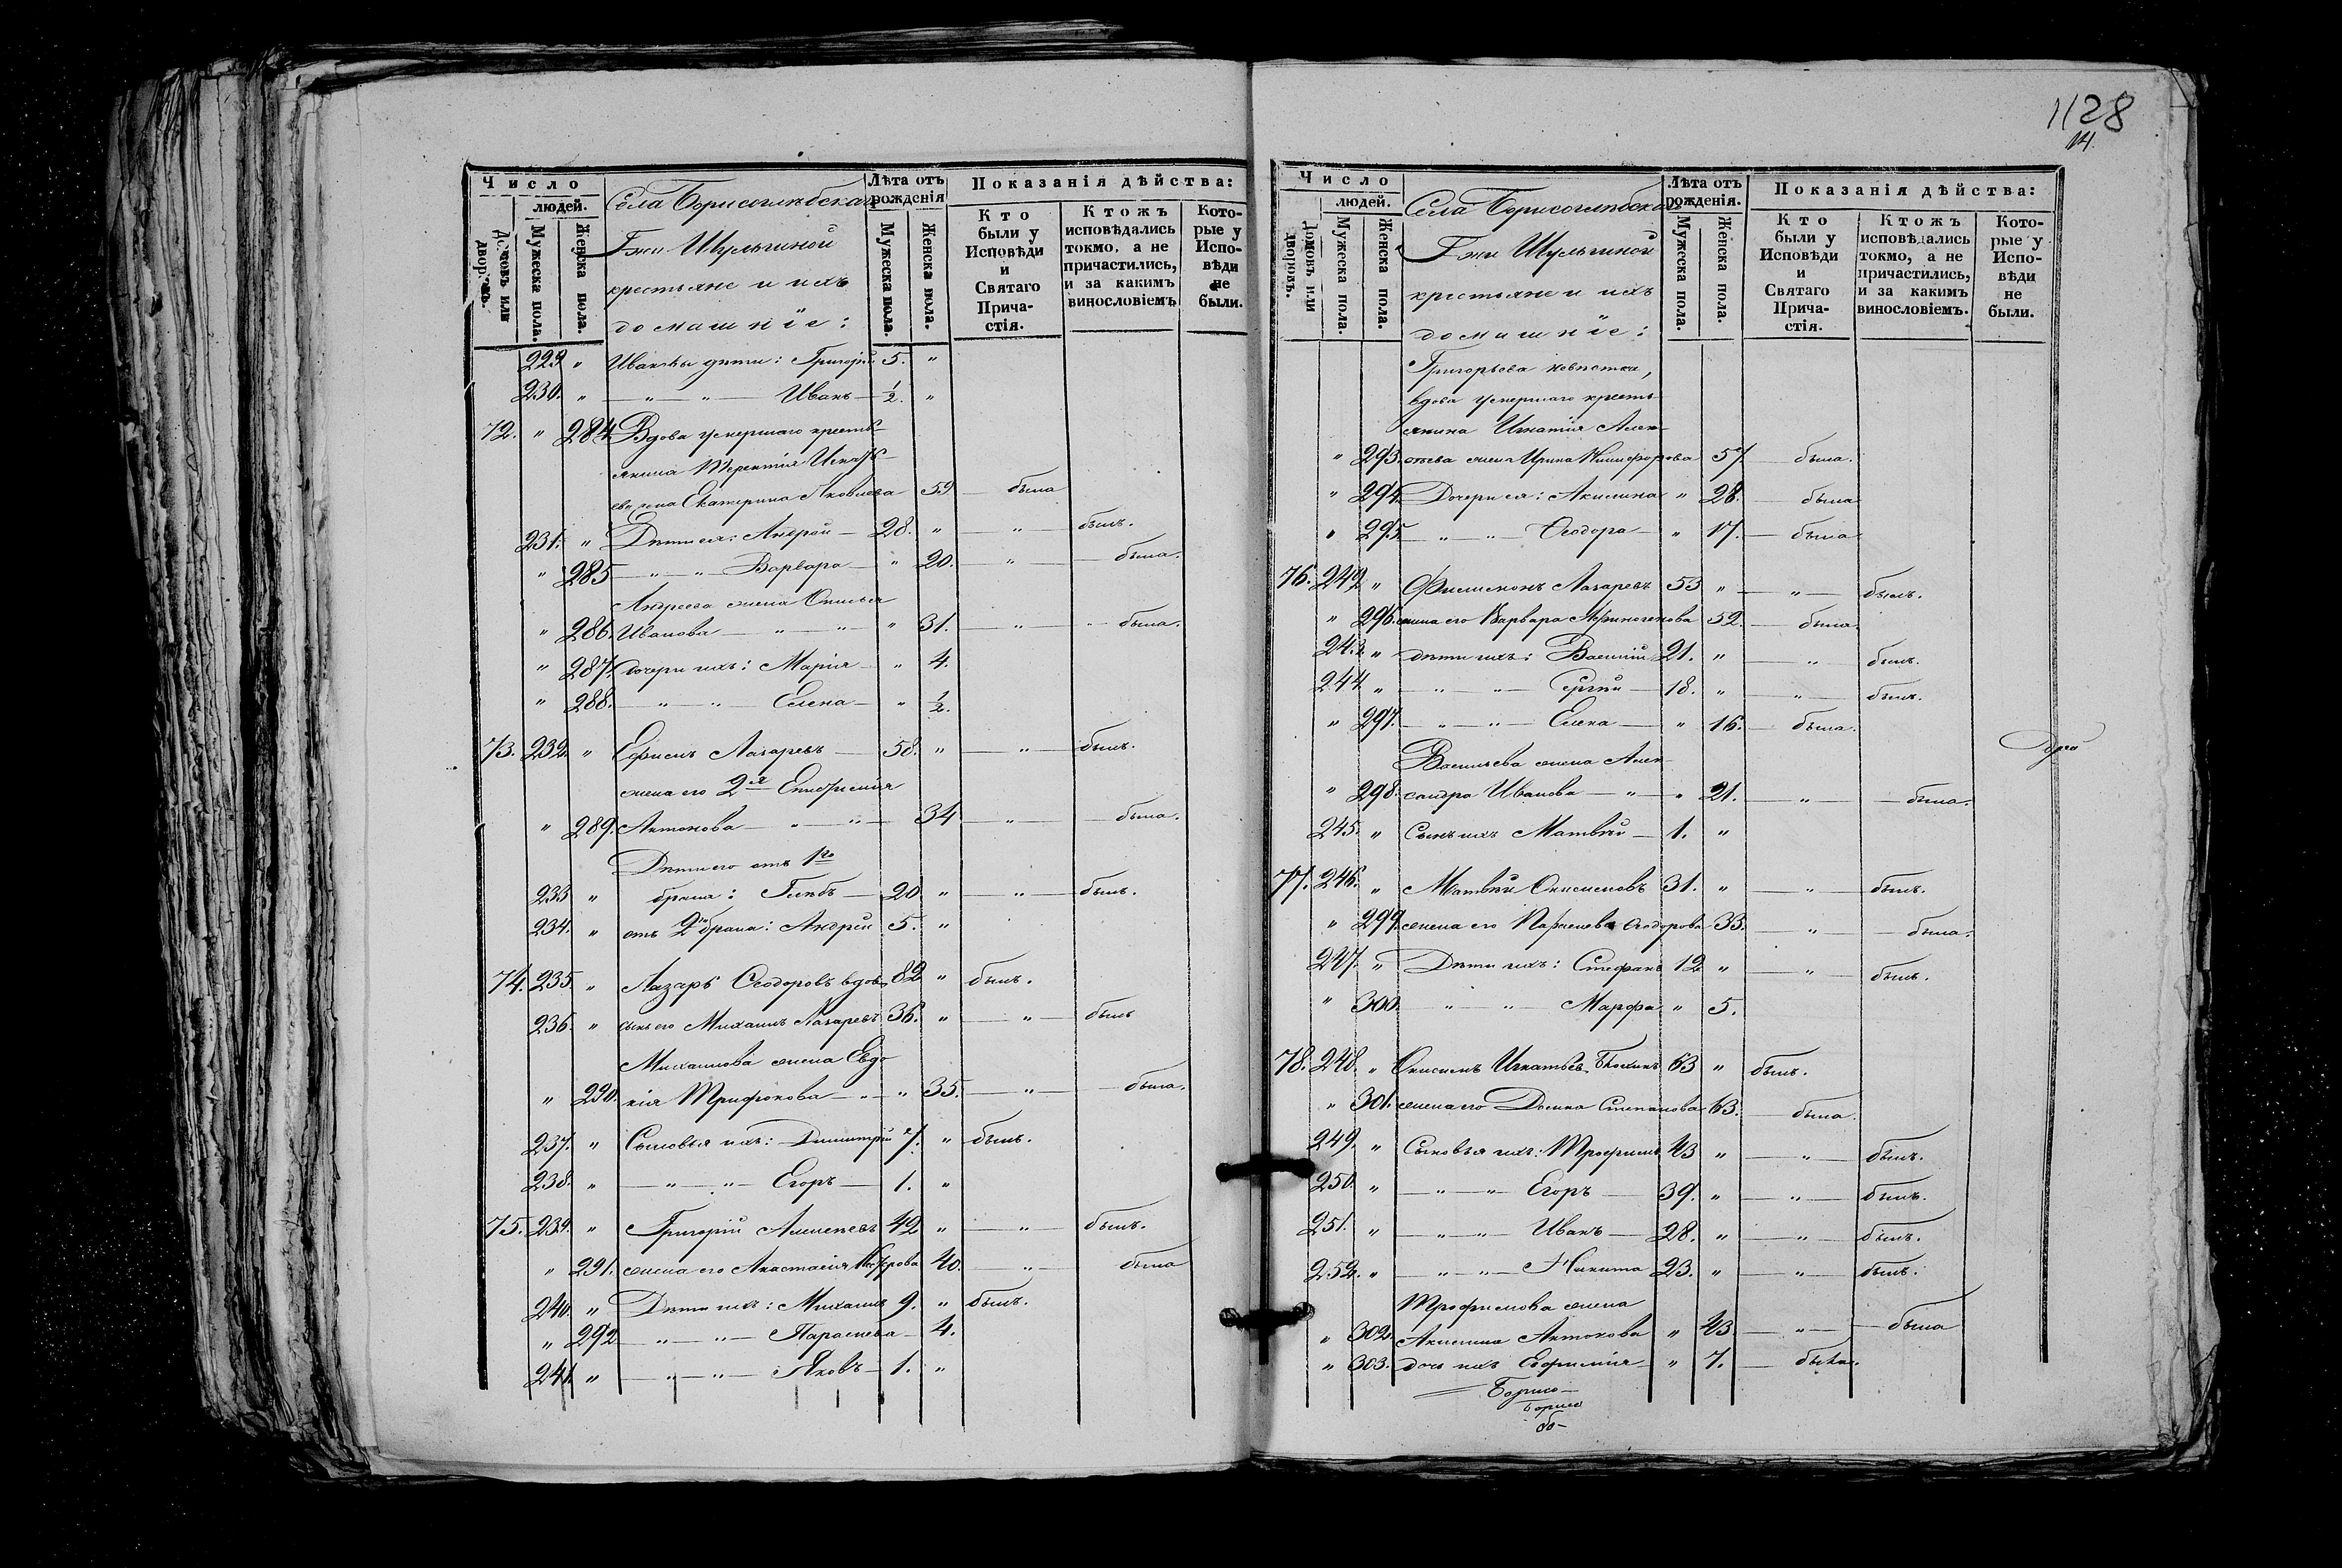 Число
людей.
Домовъ или дворовъ.
Мужеска пола.
Женска пола.
Села Борисоглѣбскаго
Гжи Шульгиной
крестьяне и ихъ
домашніе:
Лѣта отъ рожденія
Мужеска пола.
Женска пола.
Показанія дѣйства:
Кто были у Исповѣди и Святаго Прича- стія.
Ктожъ исповѣдались токмо, а не причастились, и за какимъ винословіемъ
Кото- рые у Испо- вѣди не были.
229 " Ивановы дѣти: Григорій 5. "
230. " " " Иванъ 1/2. "
72. " 284 Вдова умершаго кресть-
янина Терентія Игнать-
ева жена Екатерина Яковлева 59 была
231. " Дѣти ея: Андрей 28. " " былъ.
" 285 " " Варвара " 20. " была.
Андреева жена
" 286. Иванова " " " 31. " была.
" 287. дочери ихъ: Марія " 4.
" 288. " " Елена " 1/2.
73. 232. " Ефимъ Лазаревъ 58. " " былъ.
жена его 2я
" 289. Антонова " " 34 " была.
Дѣти его отъ 1го
233 " брака: Глѣбъ 20 " " былъ.
234. " отъ 2 брака: Андрей 5. "
74. 235 " Лазарь Ѳеодоровъ вдовъ 82 " былъ.
236. " сынъ его Михаилъ Лазаревъ 36. " " былъ
Михаилова жена Евдо
" 290. кія Трифонова " " 35. " была.
237. " Сыновья ихъ: Димитрій 7. " былъ.
238. " " " Егоръ 1. "
75. 239. " Григорій Алексѣевъ 42 " " былъ.
" 291. жена его Анастасія 40. " была
240. " Дѣти ихъ: Михаилъ 9. " былъ.
" 292 " " Параскева 4.
241. " " " Яковъ 1. "
1128
14.
Число
людей.
Домовъ или дворовъ.
Мужеска пола.
Женска пола.
Села Борисоглѣбска
Гжи Шульгиной
крестьяне и ихъ
домашніе:
Лѣта отъ рожденія.
Мужеска пола.
Женска пола.
Показанія дѣйства:
Кто были у Исповѣди и Святаго Прича- стія.
Ктожъ исповѣдались токмо, а не причастились, и за какимъ винословіемъ.
Кото- рые у Испо- вѣди не были.
Григорьева невѣстка,
вдова умершаго кресть-
янина Игнатія Алек-
" 293. сѣева жена Ирина Никифорова 57 была.
" 294. Дочери ея: Акилина " 28. была
" 295. " " Ѳеодора " 17. была
76. 242 " Филимонъ Лазаревъ 53 " " былъ.
" 296. жена его Варвара Афиногенова 52. была.
243. " дѣти ихъ: Василій 21. " " былъ.
244 " " " Сергій 18. " " былъ.
" 297. " " Елена " 16. была.
Васильева жена Алек-
" 298. сандра Иванова " " 21. " была.
245. " Сынъ ихъ Матвѣй 1. "
77. 246. " Матвѣй Онисимовъ 31. " " былъ.
" 299. жена его Параскева Ѳеодорова 33. " была.
247. " Дѣти ихъ: Стефанъ 12 " " былъ.
" 300. " " Марфа " 5.
78. 248. " Онисимъ Игнатьев 63 " былъ.
" 301. жена его Домна Степанова 63. была.
249. " Сыновья ихъ: Трофимъ 43 " " былъ.
250. " " " Егоръ 39. " " былъ.
251. " " " Иванъ 28. " " былъ.
252. " " " Никита 23. " " былъ.
Трофимова жена
" 302. Акилина Антонова " 43 " была
" 303. дочь ихъ Евфимія " 7. была.
Борисо-
Борисо